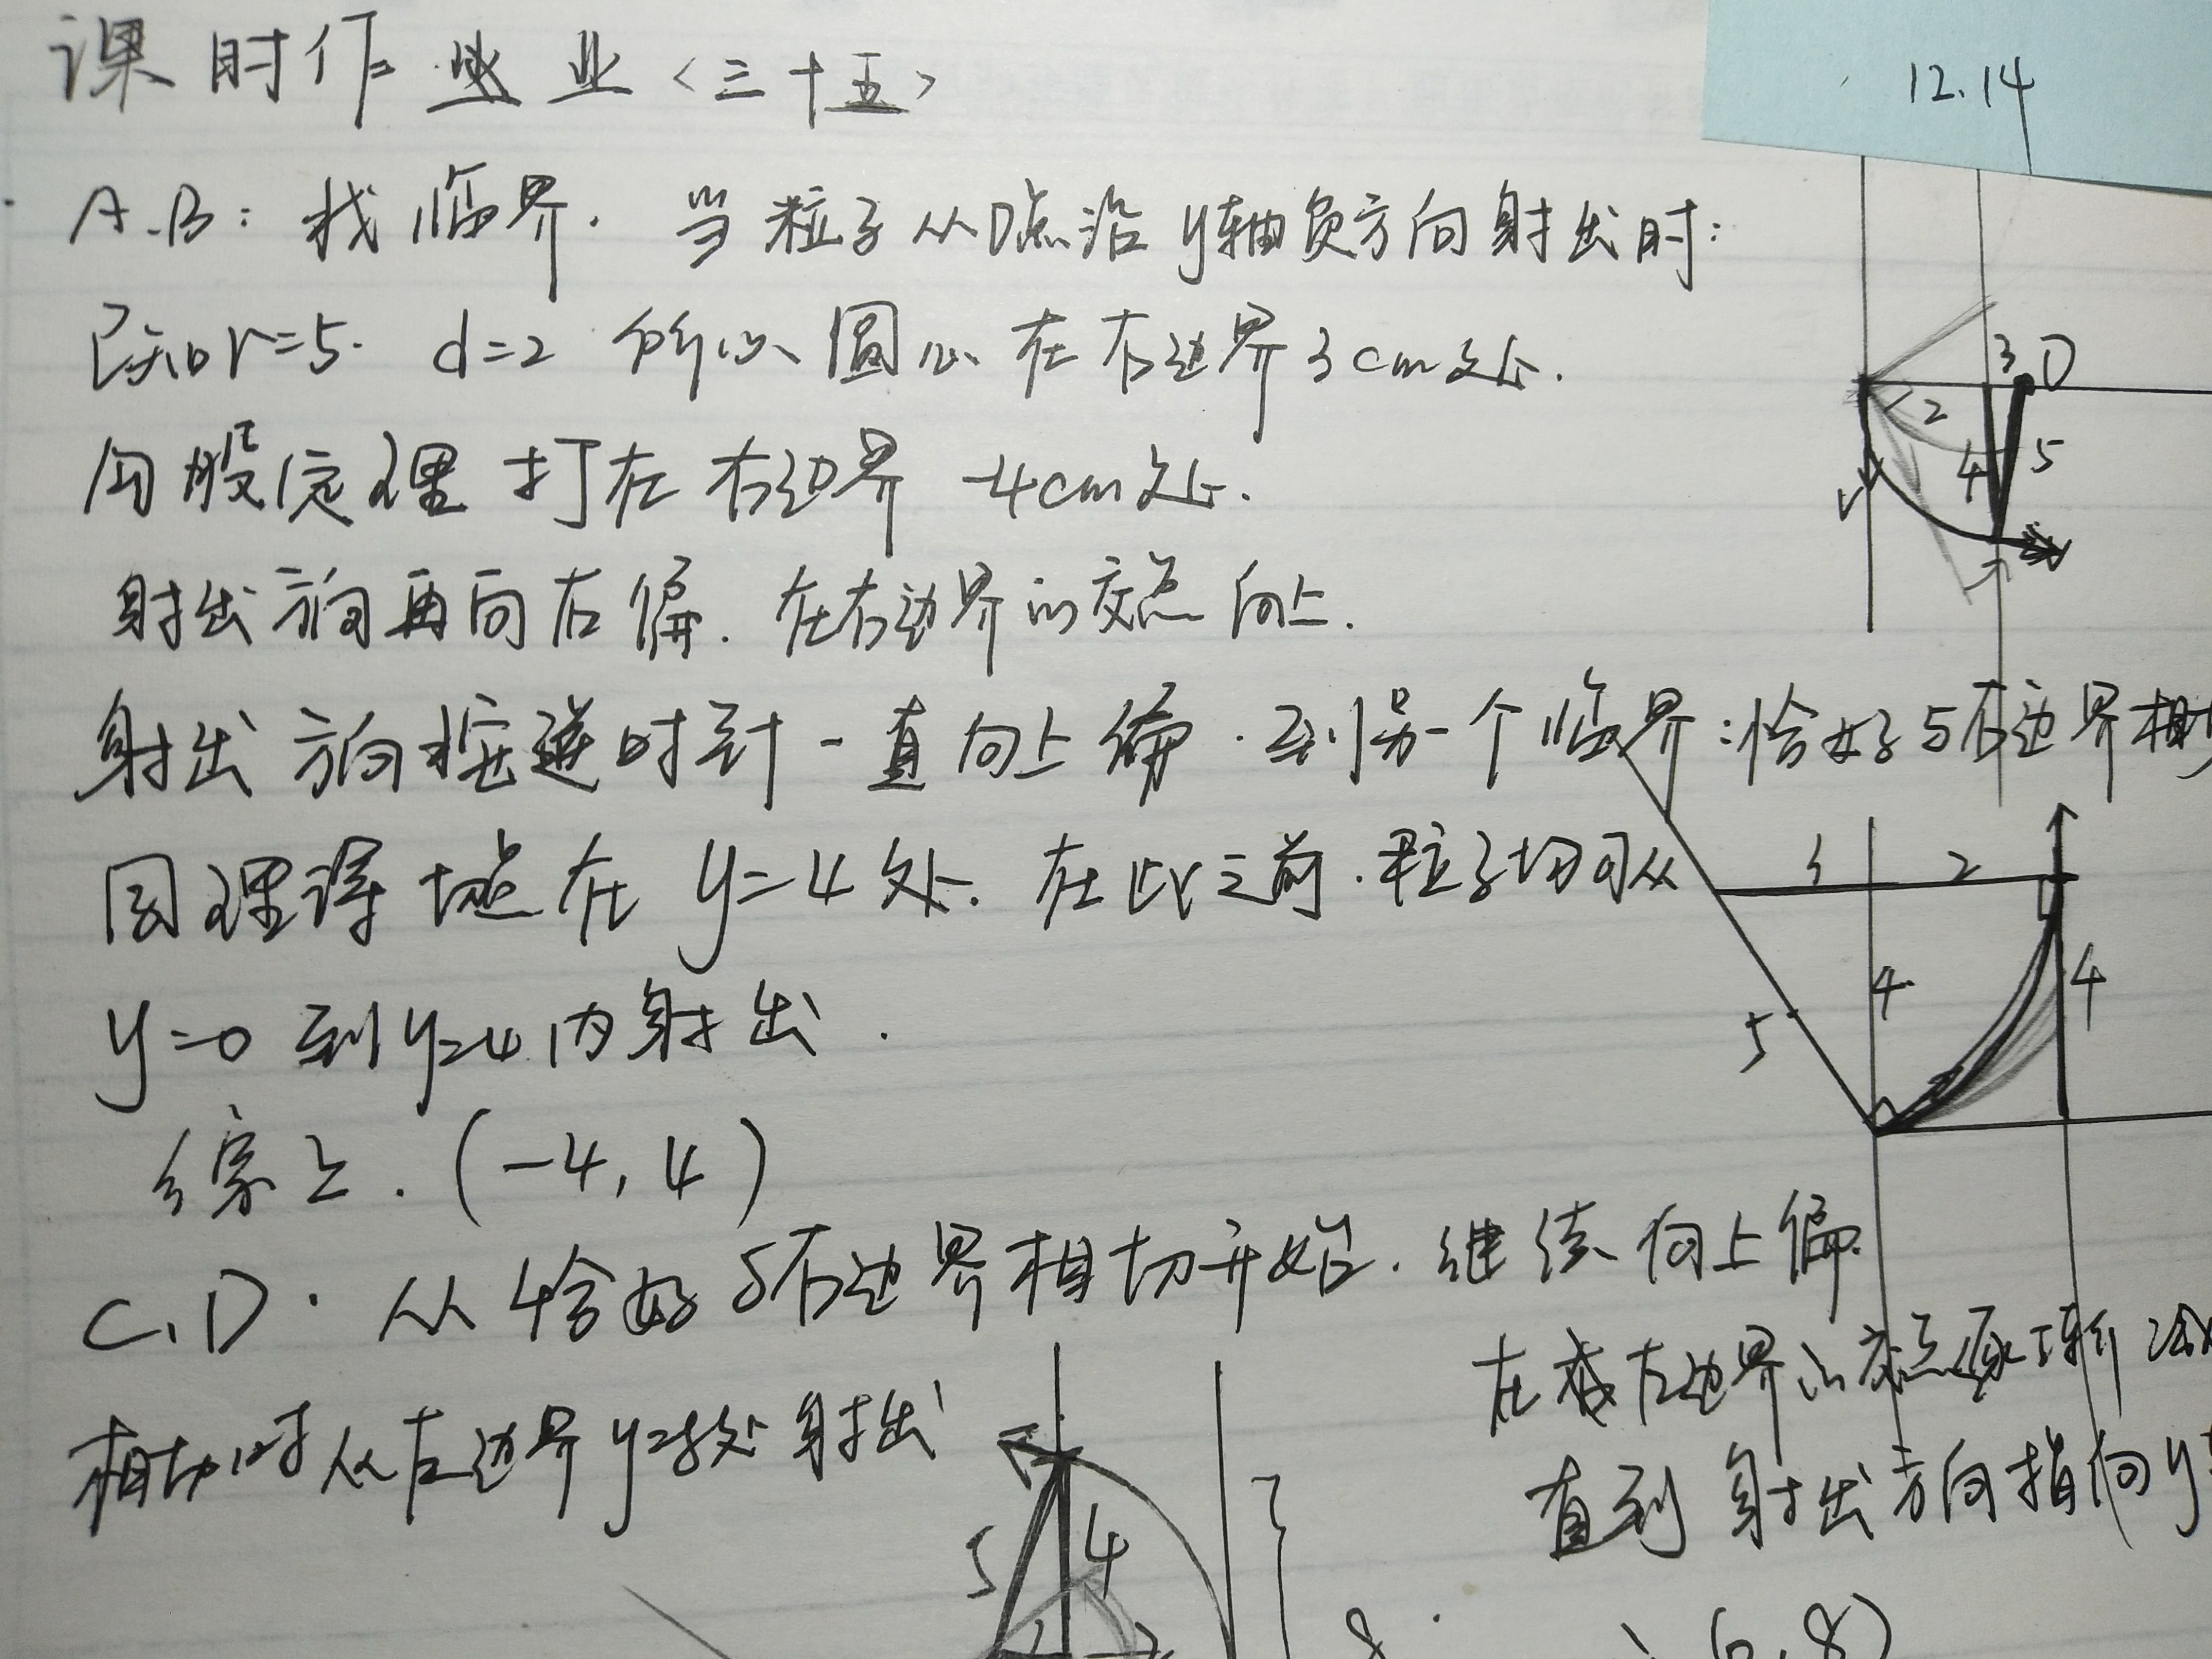 课时作业<三十五>
12.14
A.B：找临界．当粒子从O点沿y轴负方向射出时：
已知r=5. d=2 所以圆心在右边界3cm处.
勾股定理 打在右边界 -4cm处.
射出方向再向右偏．在右边界的交点向上．
射出方向按逆时针一直向上偏．到另一个临界：恰好与右边界相切
同理得切点在 y=4处．在此之前．粒子均可从
y=0到y=4内射出．
综上．(-4, 4)
C、D．从恰好与右边界相切开始．继续向上偏．
在左边界的交点逐渐
相切时从左边界y=8处射出
直到射出方向指向y
3 D
2
4 5
3 2
4 4
5
5 4
3 2
8
(0, 8)